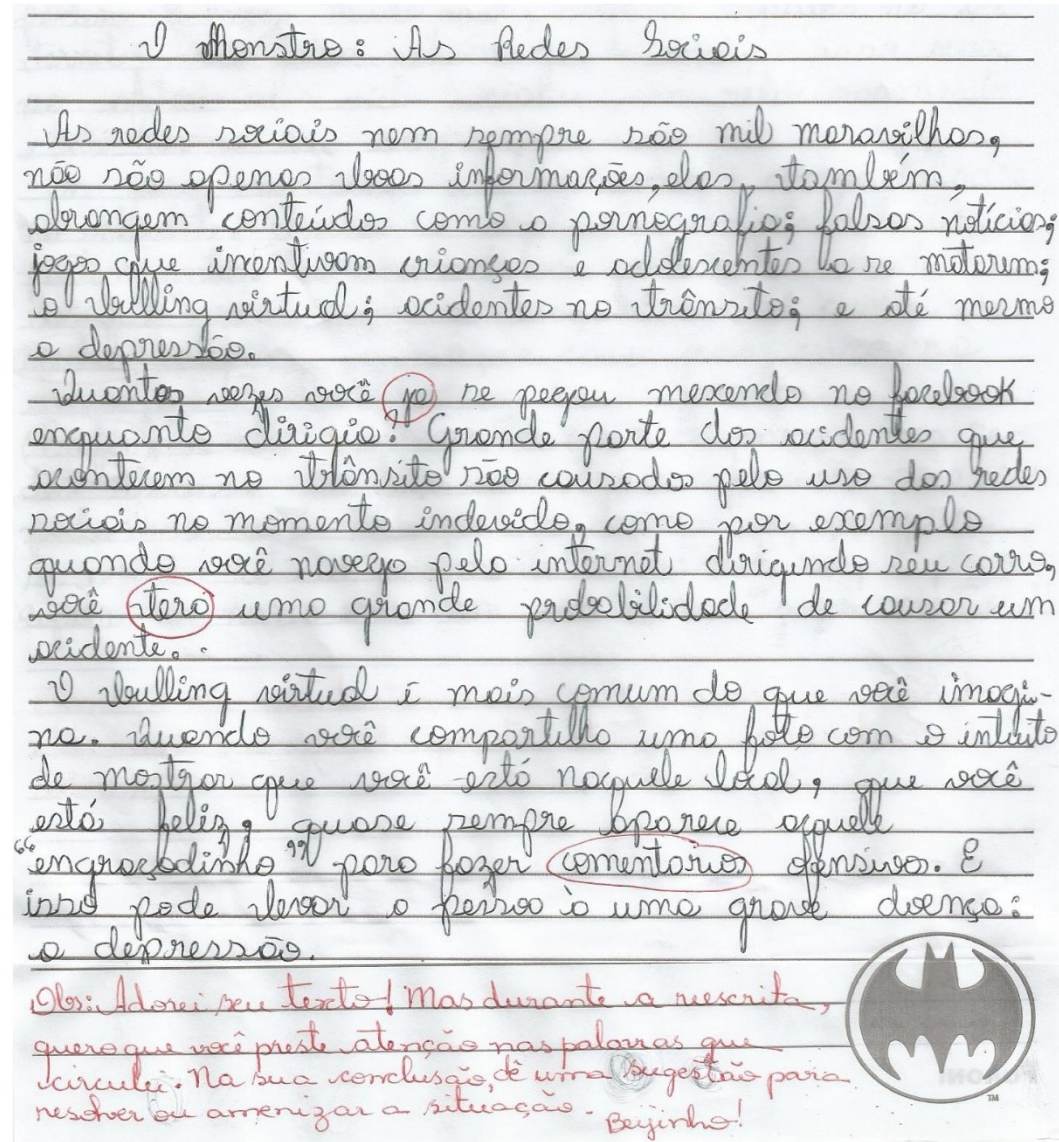 O Monstro: As Redes Sociais
As redes sociais nem sempre são mil maravilhas,
não são apenas boas informações, elas, também,
abrangem conteúdos como a pornografia; falsas notícias;
jogos que incentivam crianças e adolescentes a se matarem;
o bulling virtual; acidentes no trânsito; e até mesmo
a depressão.
Quantas vezes você ja se pegou mexendo no facebook
enquanto dirigia? Grande parte dos acidentes que
acontecem no trânsito são causados pelo uso das redes
sociais no momento indevido, como por exemplo
quando você navega pela internet dirigindo seu carro,
você tera uma grande probabilidade de causar um
acidente.
O bulling virtual é mais comum do que você imagi-
na. Quando você compartilha uma foto com o intuito
de mostrar que você está naquele local, que você
está feliz, quase sempre aparece aquele
"engraçadinho" para fazer comentarios ofensivos. E
isso pode levar a pessoa à uma grave doença:
a depressão.
Obs: Adorei seu texto! Mas durante a reescrita,
quero que você preste atenção nas palavras que
circulei. Na sua conclusão, dê uma sugestão para
resolver ou amenizar a situação.
Beijinho!
TM